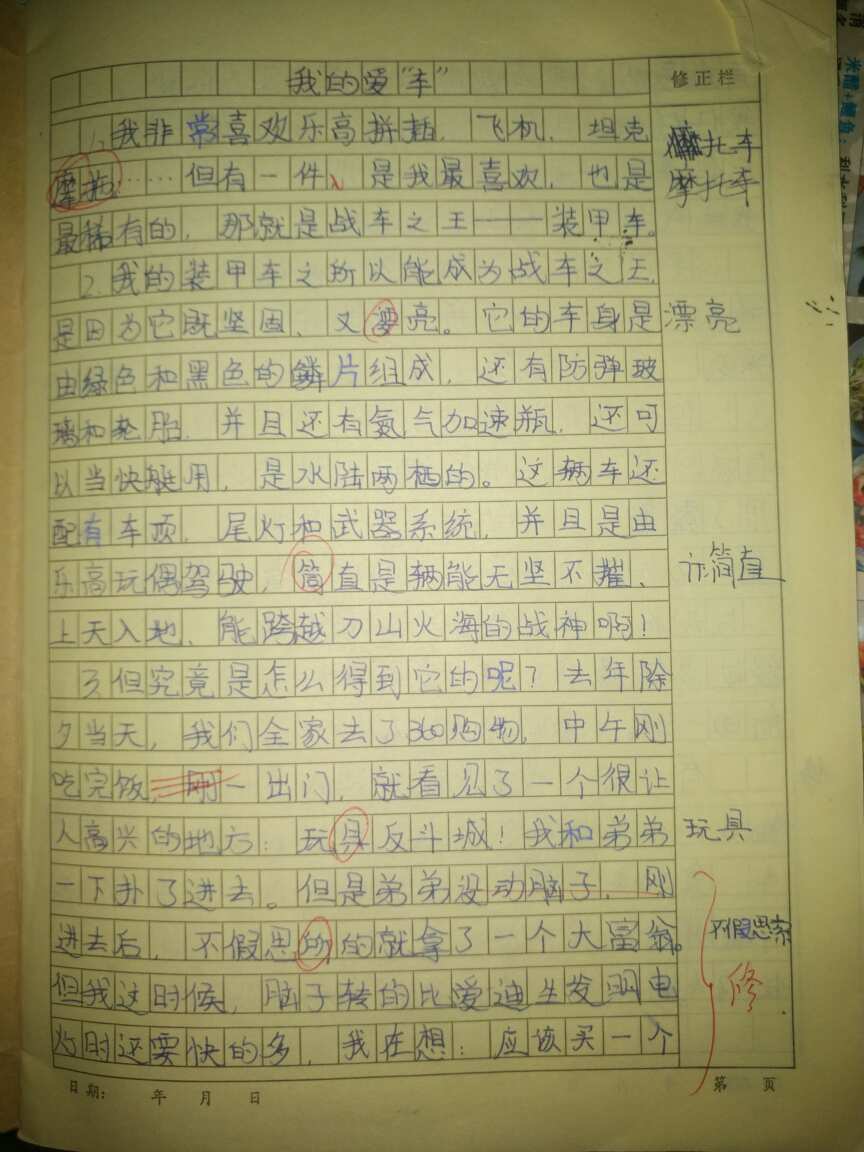 我的爱“车”
修正栏
1.我非常喜欢乐高拼插，飞机，坦克
摩托……但有一件、是我最喜欢，也是
摩托车
摩托车
最稀有的，那就是战车之王——装甲车。
2.我的装甲车之所以能成为战车之王，
是因为它既坚固，又漂亮。它的车身是
漂亮
由绿色和黑色的鳞片组成，还有防弹玻
璃和轮胎，并且还有氨气加速瓶，还可
以当快艇用，是水陆两栖的。这辆车还
配有车顶，尾灯和武器系统，并且是由
乐高玩偶驾驶，简直是辆能无坚不摧、
简直
上天入地、能跨越刀山火海的战神啊！
3.但究竟是怎么得到它的呢？去年除
夕当天，我们全家去了360购物，中午刚
吃完饭，刚一出门，就看见了一个很让
人高兴的地方：玩具反斗城！我和弟弟
玩具
一下扑了进去。但是弟弟没动脑子，刚
进去后，不假思所的就拿了一个大富翁。
不假思索
但我这时候，脑子转的比爱迪生发明电
修
灯时还要快的多，我在想：应该买一个
日期： 年 月 日
第 页